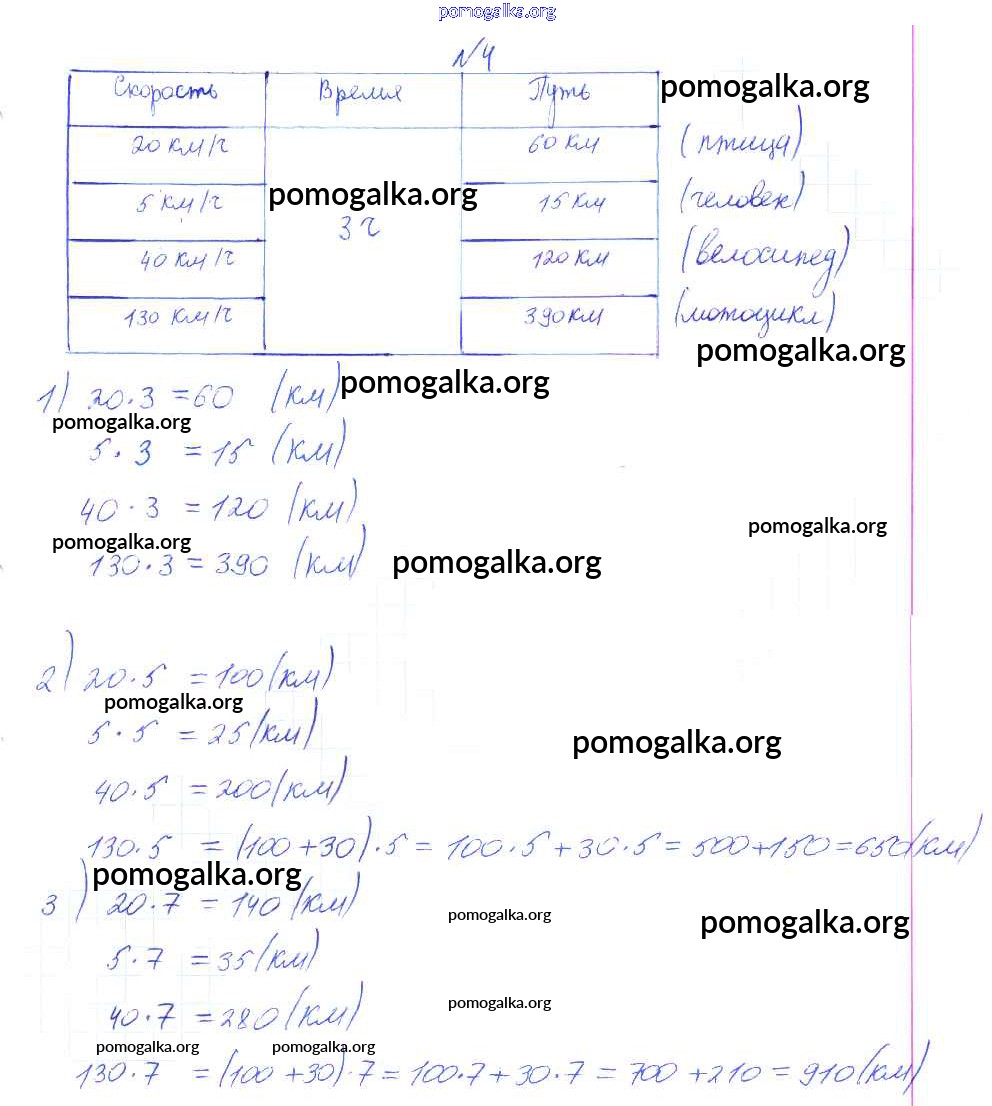 pomogalka.org
№4
Скорость Время Путь pomogalka.org
20 км/ч 60 км (птица)
pomogalka.org
5 км/ч 3 ч 15 км (человек)
40 км/ч 120 км (велосипед)
130 км/ч 390 км (мотоцикл)
pomogalka.org
1) 20·3 =60 (км) pomogalka.org
pomogalka.org
5·3 =15 (км)
40·3 =120 (км)
pomogalka.org
pomogalka.org
130·3=390 (км) pomogalka.org
2) 20·5 =100(км)
pomogalka.org
5·5 =25(км) pomogalka.org
40·5 =200(км)
130·5 =(100+30)·5=100·5+30·5=500+150=650(км)
pomogalka.org
3) 20·7 =140(км) pomogalka.org pomogalka.org
5·7 =35(км)
pomogalka.org
40·7 =280(км)
pomogalka.org pomogalka.org
130·7 =(100+30)·7=100·7+30·7=700+210=910(км)